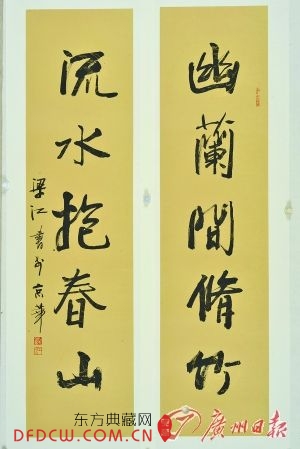 幽蘭間脩竹
流水抱春山
梁江書於京華
东方典藏网
DFDCW.COM.CN
廣州日报